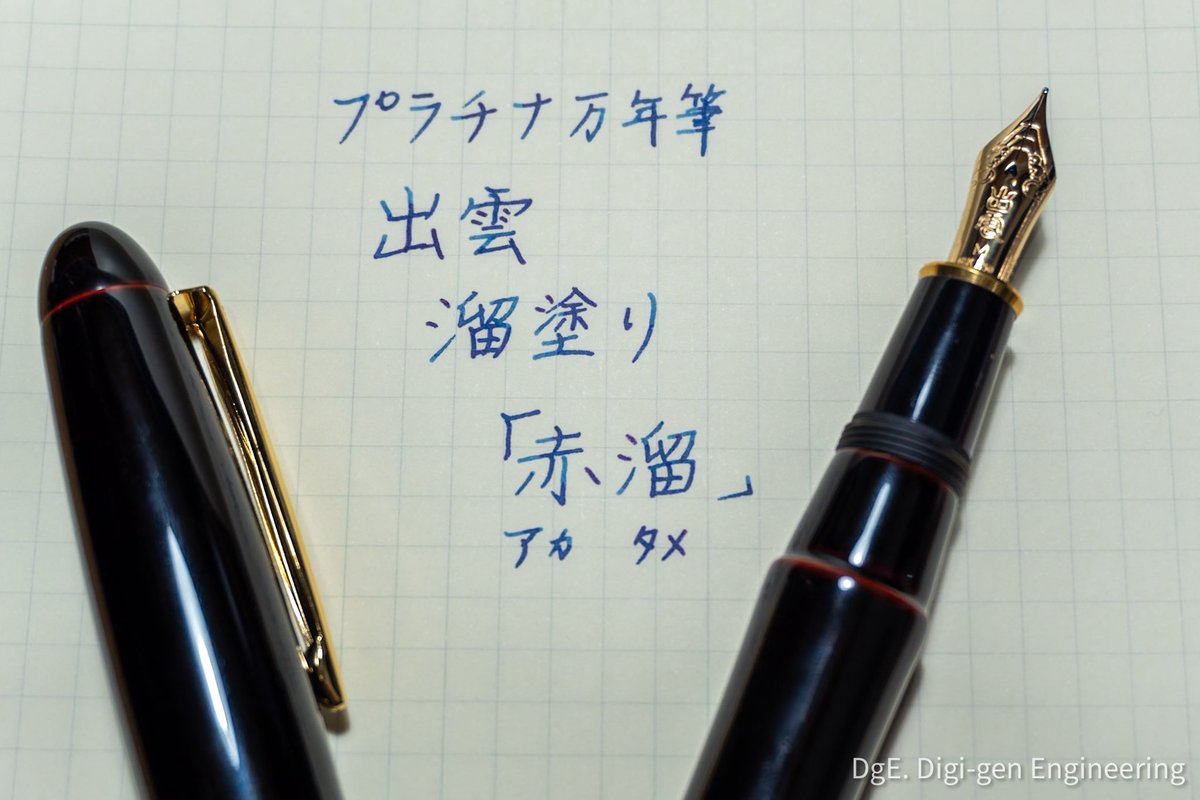 プラチナ万年筆
出雲
溜塗り
「赤溜」
アカ タメ
DgE. Digi-gen Engineering